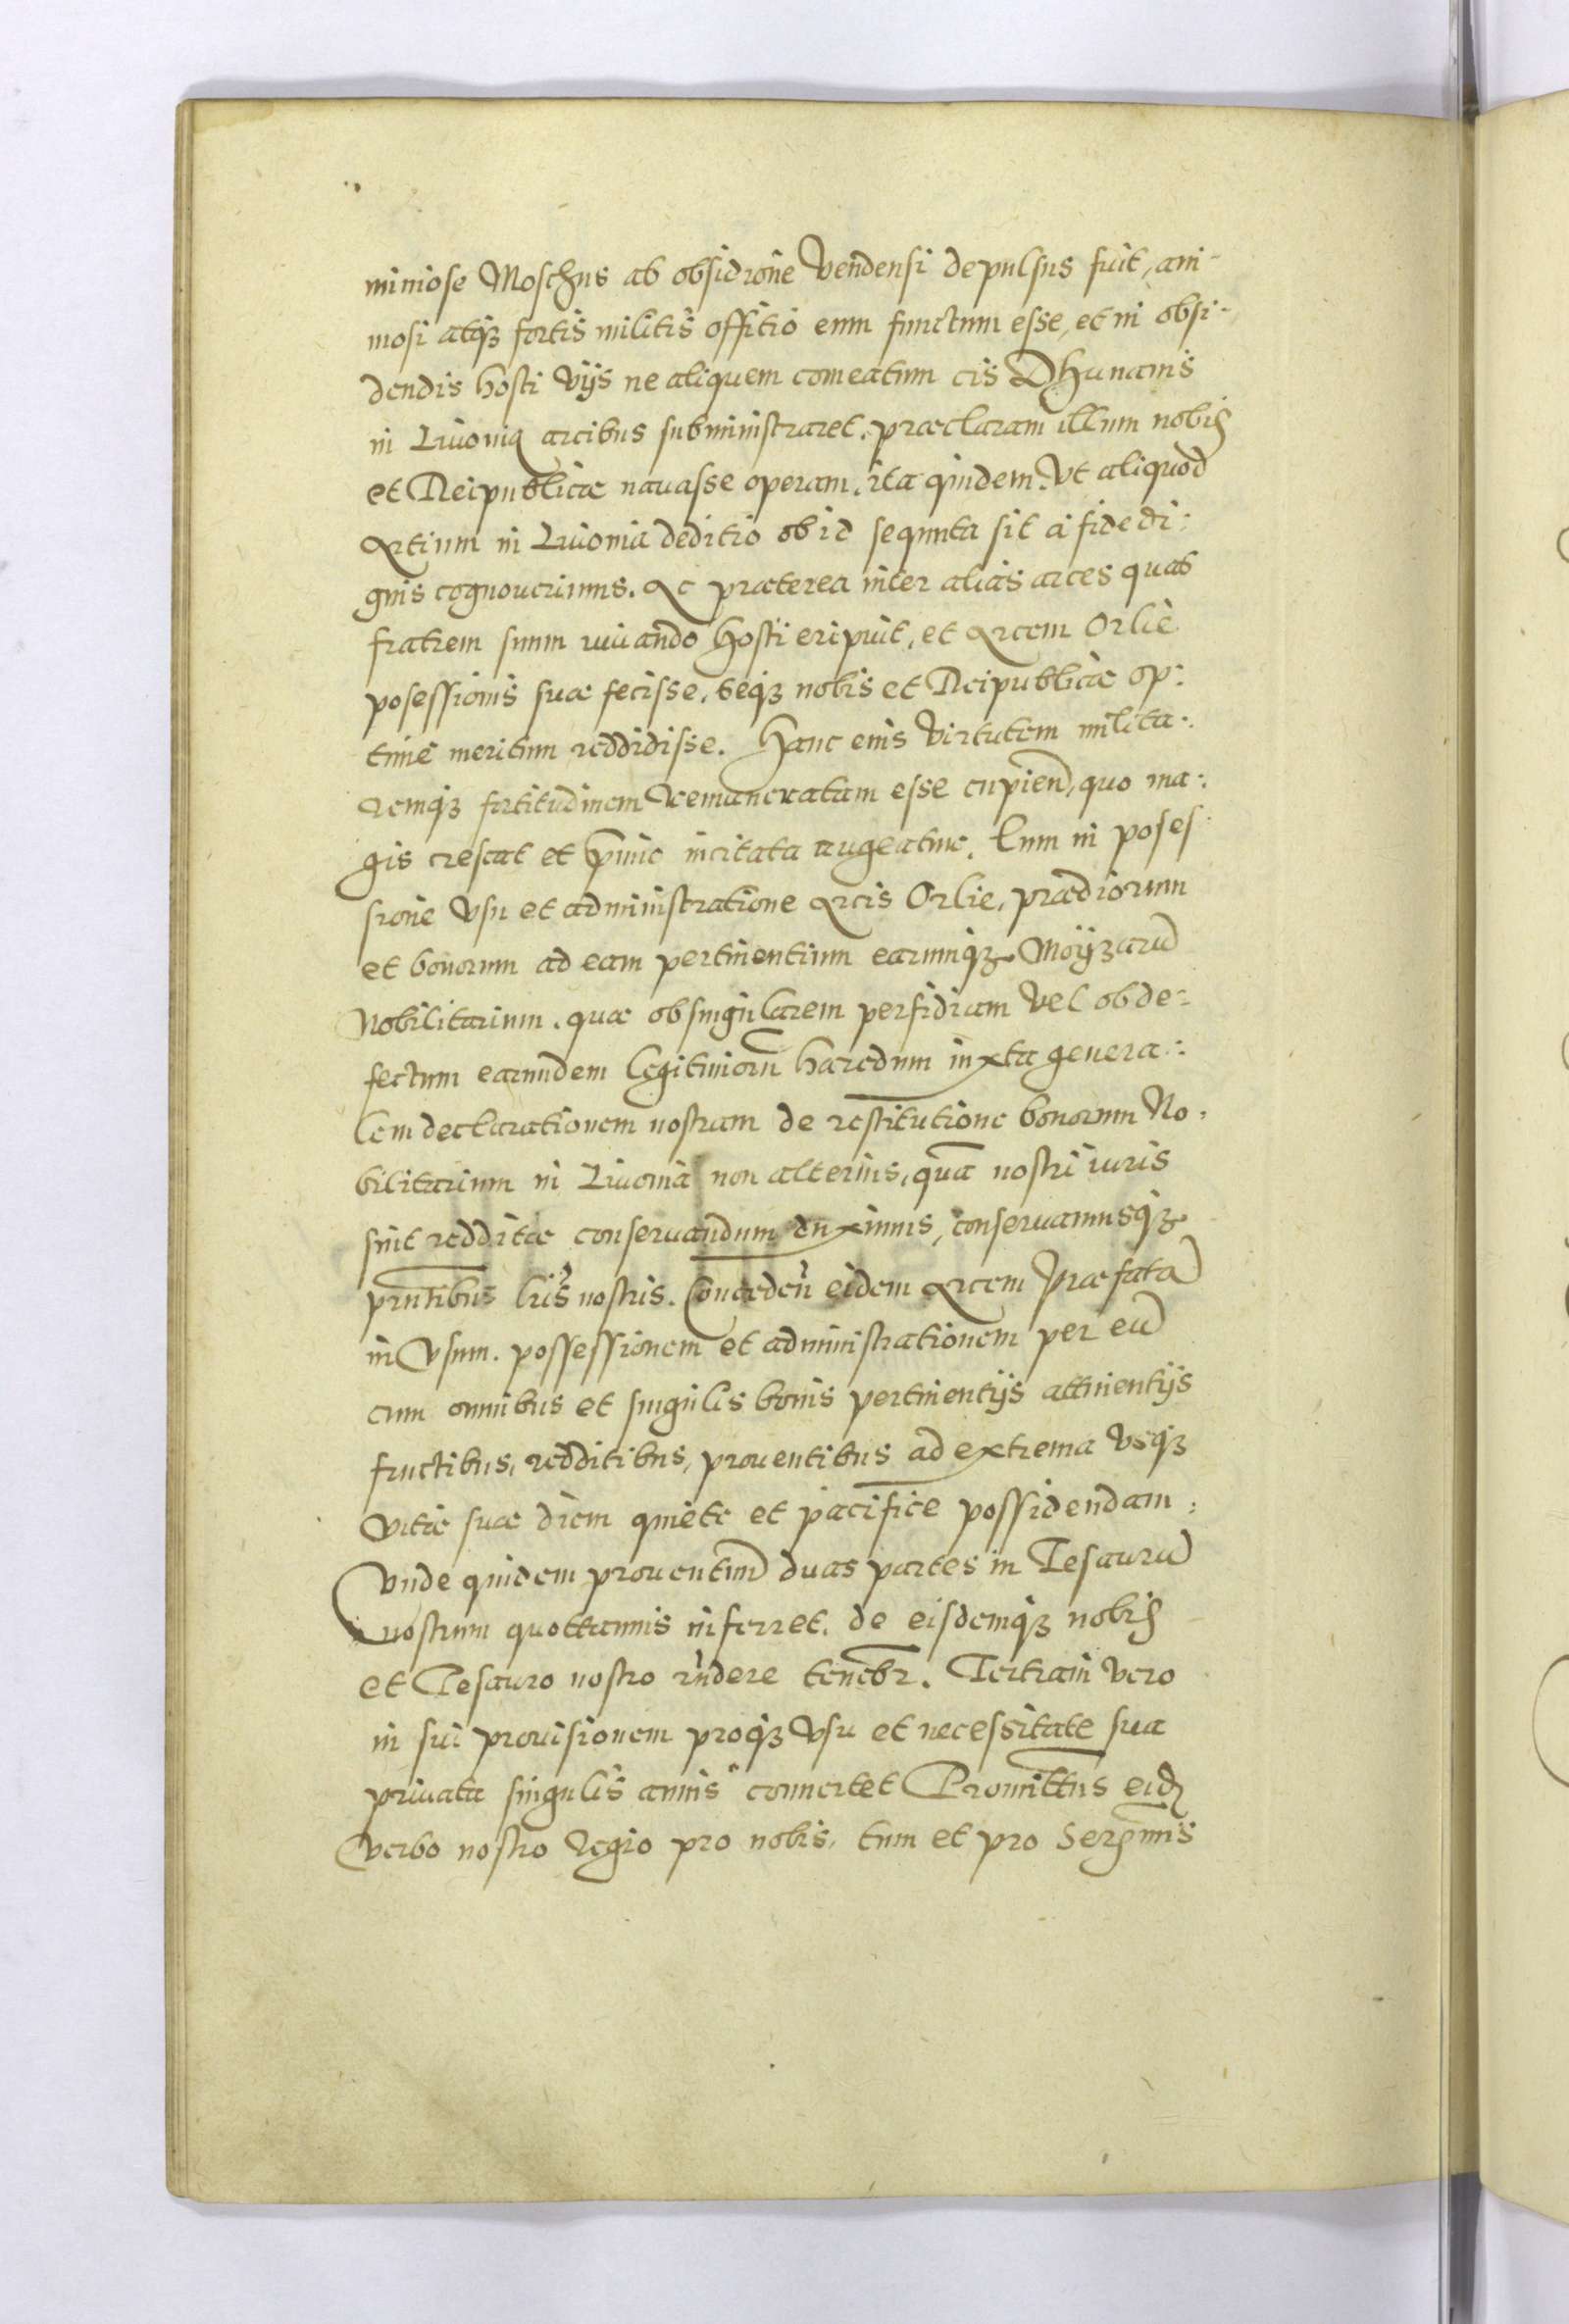 miniose Moschus ab obsidione Vendensi depulsus fuit, ani-
mosi atq₃ fortis militis offitio eum functum esse, et in obsi-
dendis hosti vijs ne aliquem comeatum cis Dhunanis
in Livonia arcibus subministraret, praeclaram illum nobis
et Reipublicae navasse operam, ita quidem, Vt aliquod
Artium in Livonia deditio ob id sequuta sit a fide di:
gnis cognoverimus. Ac praeterea inter alias arces quas
fratrem suum iuvando hosti eripuit, et Arcem Orlie
posessionis suae fecisse, seq₃ nobis et Reipublicae op:
time meritum reddidisse. Hanc eius Virtutem milita:
remq₃ fortitudinem remuneratam esse cupien, quo ma:
gis crescat et pmio incitata augeatur. Eum in poses
sione vsu et administratione Arcis Orlie, praediorum
et bonorum ad eam pertinentium earumq₃ Moyzaru
Nobilitarium, quae ob singularem perfidiam vel ob de:
fectum earundem legitimoru haeredum iuxta genera:
lem declarationem nostram de restitutione bonorum No:
bilitarium in Livonia non alterius, qua nostri iuris
sint redditae conservandum duximus, conservamusq₃
pntibus lris nostris. Conceden eidem Arcem Praefata
in Vsum, possessionem et administrationem per eu
cum omnibus et singulis bonis pertinentijs attinentijs
fructibus, redditibus, proventibus ad extrema vsq₃
vitae suae diem quiete et pacifice possidendam:
Vnde quidem proventuu duas partes in Tesauru
nostrum quottannis inferret, de eisdemq₃ nobis
et Tesauro nostro rndere tenebr. Tertiam vero
in sui provisionem proq₃ vsu et necessitate sua
privata singulis annis convertet Promittus eid
verbo nostro regio pro nobis, tum et pro Sermis